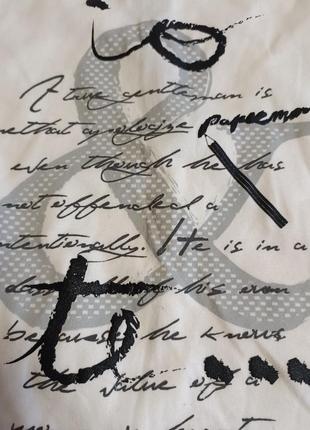 io
A true gentleman is
that apologize paperman
even though he has
not offended a
intentionally. He is in a
his own
because he knows
the value of a